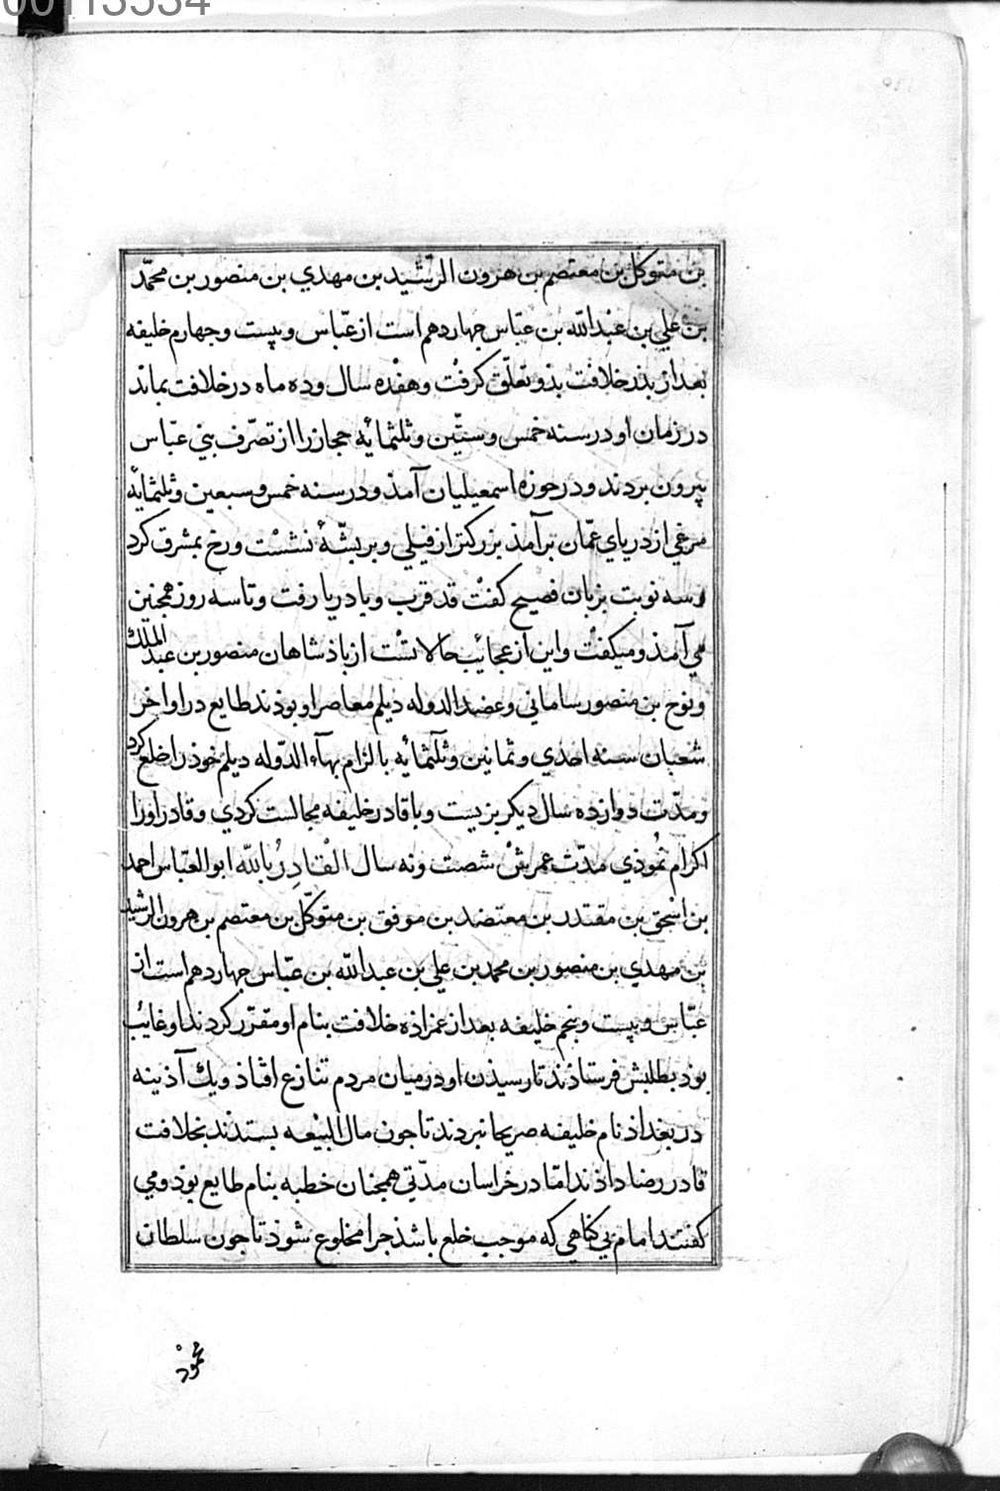 00113534
بن متوكل بن معتصم بن هرون الرّشيد بن مهدي بن منصور بن محمّد
بن علي بن عبد الله بن عبّاس چهاردهم است از عبّاس و بيست و جهارم خليفه
بعد از پذر خلافت بذو تعلّق گرفت و هفده سال و ده ماه در خلافت بماند
در زمان او در سنه خمس و ستّين و ثلثمائه حجاز را از تصرّف بني عبّاس
بيرون بردند و در حوزه اسمعيليان آمذ و در سنه خمس و سبعين و ثلثمائه
مرغي از درياي عمّان برآمذ بزركتر از فيلي و بر پشّهٔ نشست و رخ بمشرق كرد
و سه نوبت بزبان فصيح كفت قد قرب و با دريا رفت و تا سه روز همچنين
مي آمذ و ميكفت و اين از عجائب حالاتست از پاذشاهان منصور بن عبد الملك
و نوح بن منصور ساماني و عضد الدوله ديلم معاصر او بوذند طايع در اواخر
شعبان سنه احدي و ثمانين و ثلثمائه بالزام بهاء الدّوله ديلم خوذ را خلع كرد
و مدّت دوازده سال ديكر بزيست و با قادر خليفه مجالست كردي و قادر او را
اكرام نموذي مدّت عمرش شصت و نه سال القادر بالله ابو العبّاس احمد
بن اسحق بن مقتدر بن معتضد بن موفق بن متوكّل بن معتصم بن هرون الرشيد
بن مهدي بن منصور بن محمد بن علي بن عبد الله بن عبّاس چهاردهم است از
عبّاس و بيست و پنجم خليفه بعد از عمزاذه خلافت بنام او مقرّر كردند او غايب
بوذ بطلبش فرستاذند تا رسيذن او در ميان مردم تنازع افتاذ و يك آذينه
در بغداذ نام خليفه صريحا نبردند تا جون مال البيعه بستدند بخلافت
قادر رضا داذند امّا در خراسان مدّتي همچنان خطبه بنام طايع بوذ و مي
كفتند امام بي كناهي كه موجب خلع باشذ جرا مخلوع شوذ تا جون سلطان
محموذ